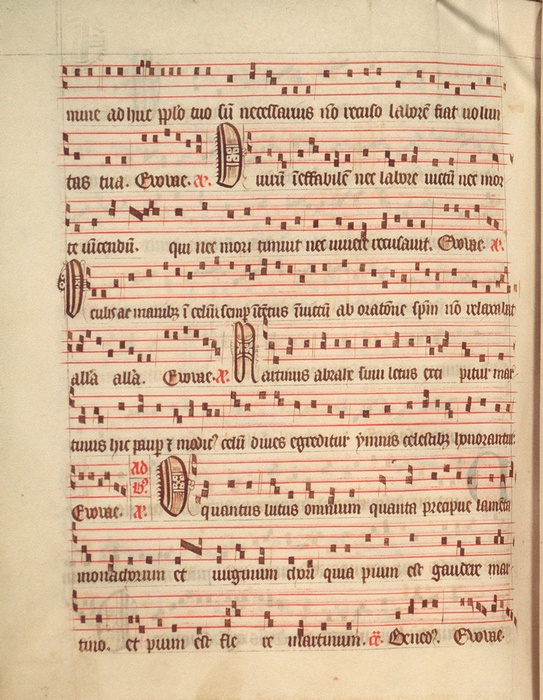 nunc adhuc pplo tuo sū necessarius nō recuso laborē fiat volun
tas tua. Evovae. ac. O virū ieffabilē nec labore victū nec mor
te vīcendū. qui nec mori timuit nec vivere recusavit. Evovae. ac.
Oculis ac manibꝫ ī celū semp ītētus īvictū ab oratōne spm̄ nō relaxabat
alla alla. Evovae. ac. Martinus abrahe sinu letus exci pitur mar
tinus hic paup ⁊ modicꝰ celū dives egreditur ymnis celestibꝫ honorantur
Evovae. ac. Ad Bꝫ O quantus luctus omnium quanta precipue lamēta
monachorum et virginum chori quia pium est gaudere mar
tino. et pium est fle re martinum. Benedꝰ. Evovae.